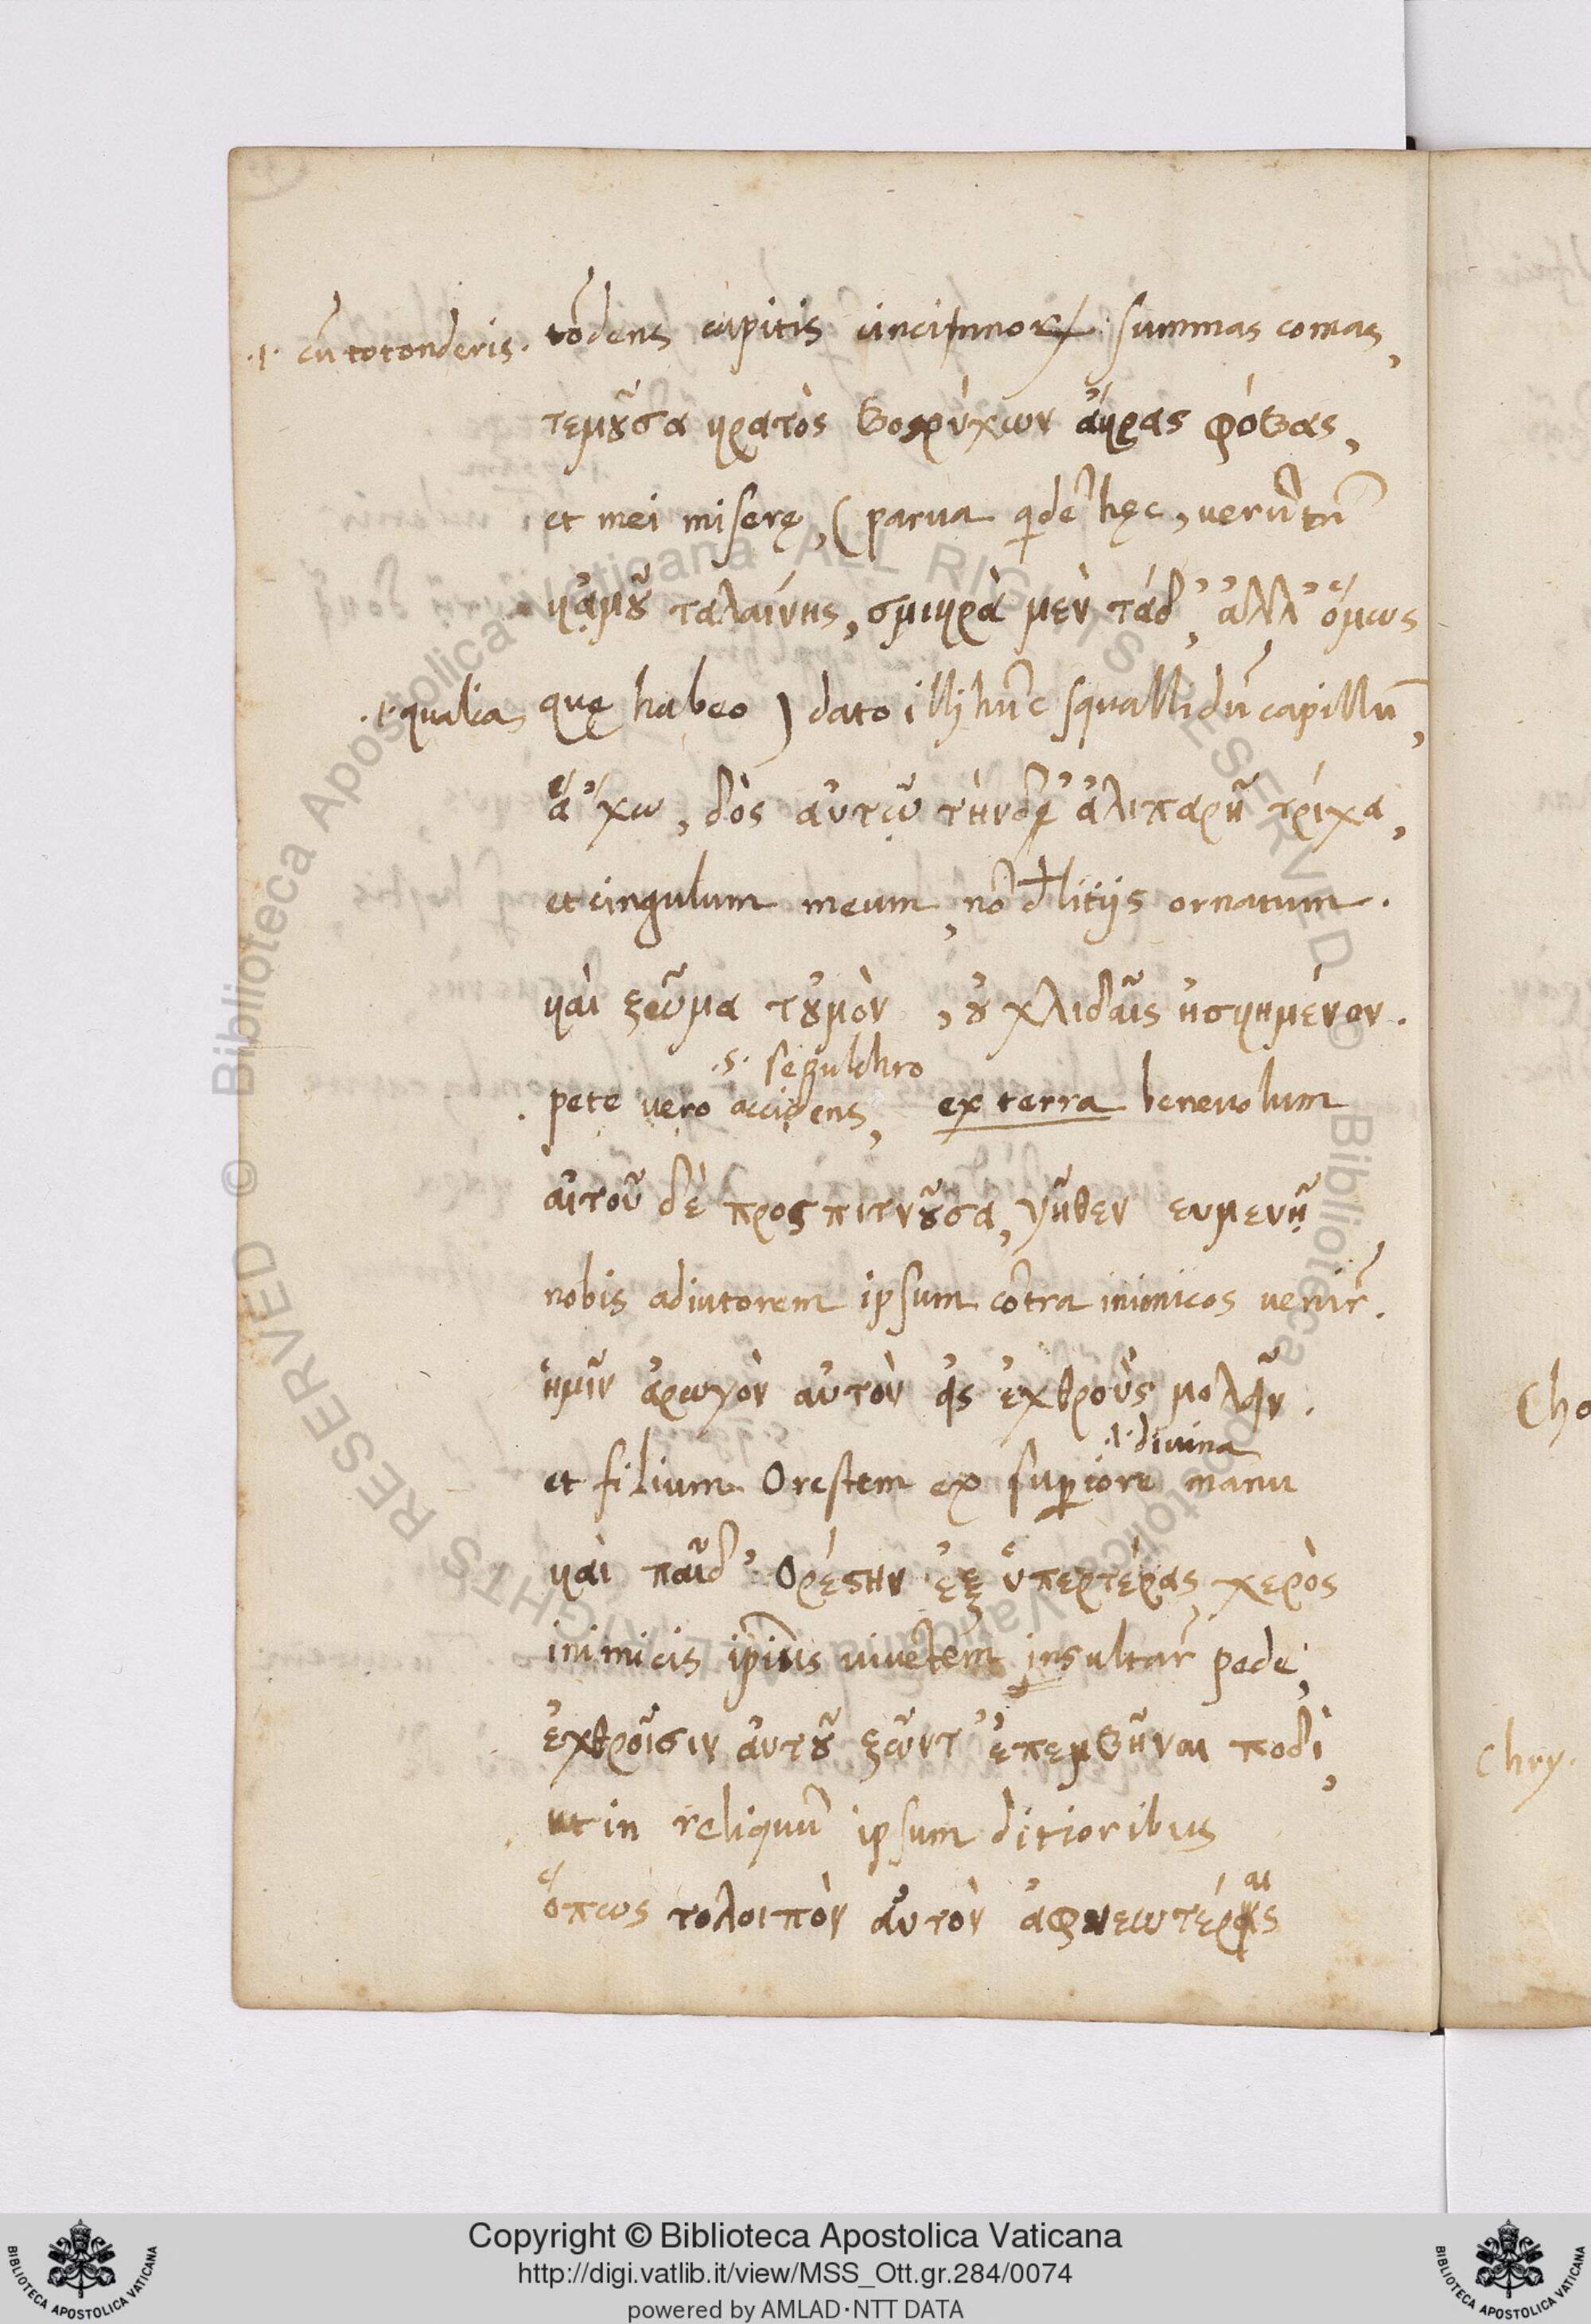 .l. cū totonderis. tōdens capitis cincinnoꝝ summas comas,
τεμοῦσα κρατὸς βοστρύχων ἄκρας φόβας,
et mei miserę, (parua qidē hęc, uerūtn̄
κᾀμοῦ ταλαίνης, σμικρὰ μὲν τάδ', ἀλλ' ὅμως
.l. qualia quę habeo) dato illi hūc squallidū capillū,
ἅ 'χω, δὸς αὐτῷ τήνδε ἀλιπαρῆ τρίχα,
et cingulum meum, nō đlitijs ornatum.
καὶ ζῶμα τοὐμὸν, οὐ χλιδαῖς ἠσκημένον.
.s. sepulchro
pete uero accidens, ex terra beneuolum
αἰτοῦ δὲ προσπιτνοῦσα, γῆθεν ευμενῆ
nobis adiutorem ipsum cōtra inimicos uenir̄.
ἡμῖν ἀρωγὸν αὐτὸν εἰς ἐχθροὺς μολεῖν.
.l. diuina
et filium Orestem ex suꝑiore manu
καὶ παῖδ' Ορέστην ἐξ ὑπερτέρας χερὸς
inimicis ip̄ius uiuētem insultar̄ pede,
ἐχθροῖσιν αὐτοῦ ζῶντ' ἐπεμβῆναι ποδὶ,
ut in reliquū ipsum ditioribus
ὅπως τολοιπὸν αὐτὸν ἀφνεωτέραις
Cho
Chry.
Copyright © Biblioteca Apostolica Vaticana
http://digi.vatlib.it/view/MSS_Ott.gr.284/0074
powered by AMLAD·NTT DATA